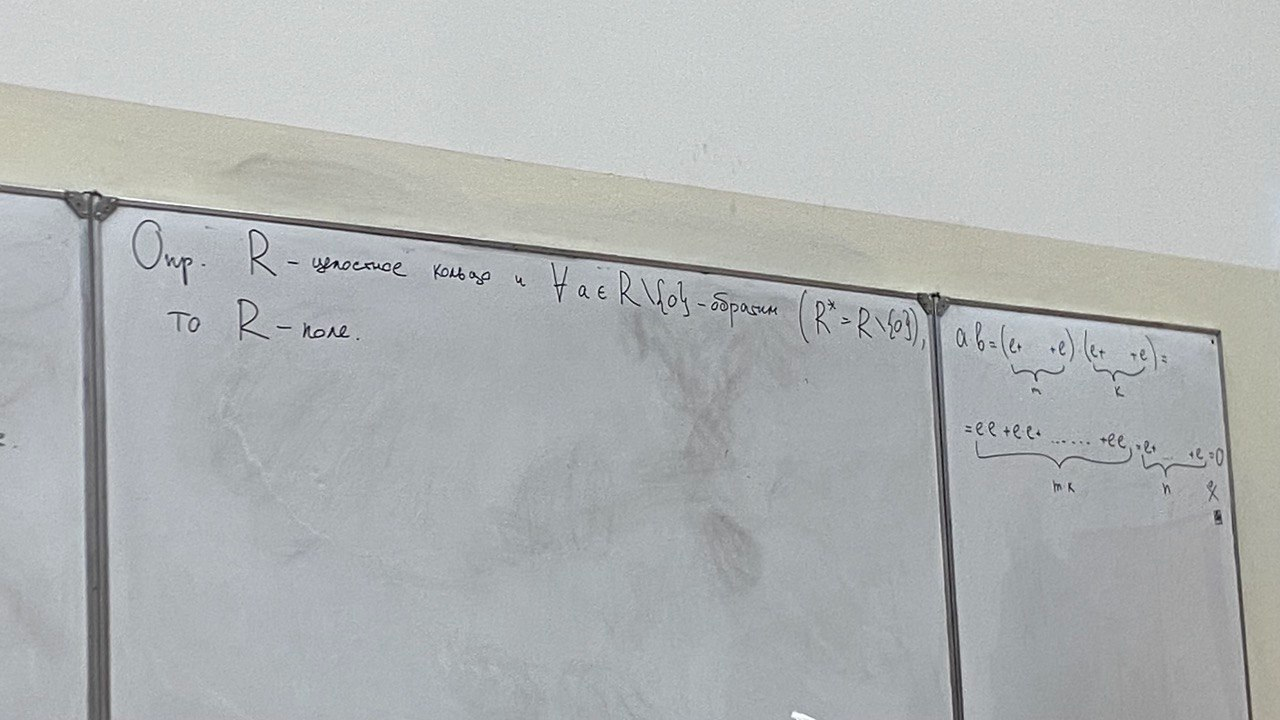 Опр. R - целостное кольцо и ∀ a ∈ R\{0} - обратим (R* = R\{0}),
то R - поле.
a·b = (e+ +e)·(e+ +e) =
m k
= ee + ee + ...... + ee = e+ ... +e = 0
mk n